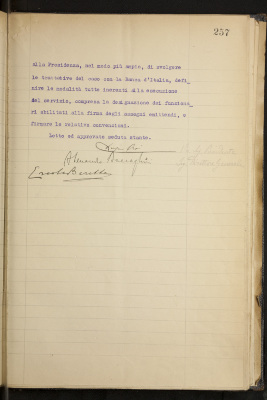 257
alla Presidenza, nel modo più ampio, di svolgere
le trattative del caso con la Banca d'Italia, defi_
nire le modalità tutte inerenti alla esecuzione
del servizio, compresa la designazione dei funziona_
ri abilitati alla firma degli assegni emittendi, e
firmare la relativa convenzione.
Letto ed approvato seduta stante.